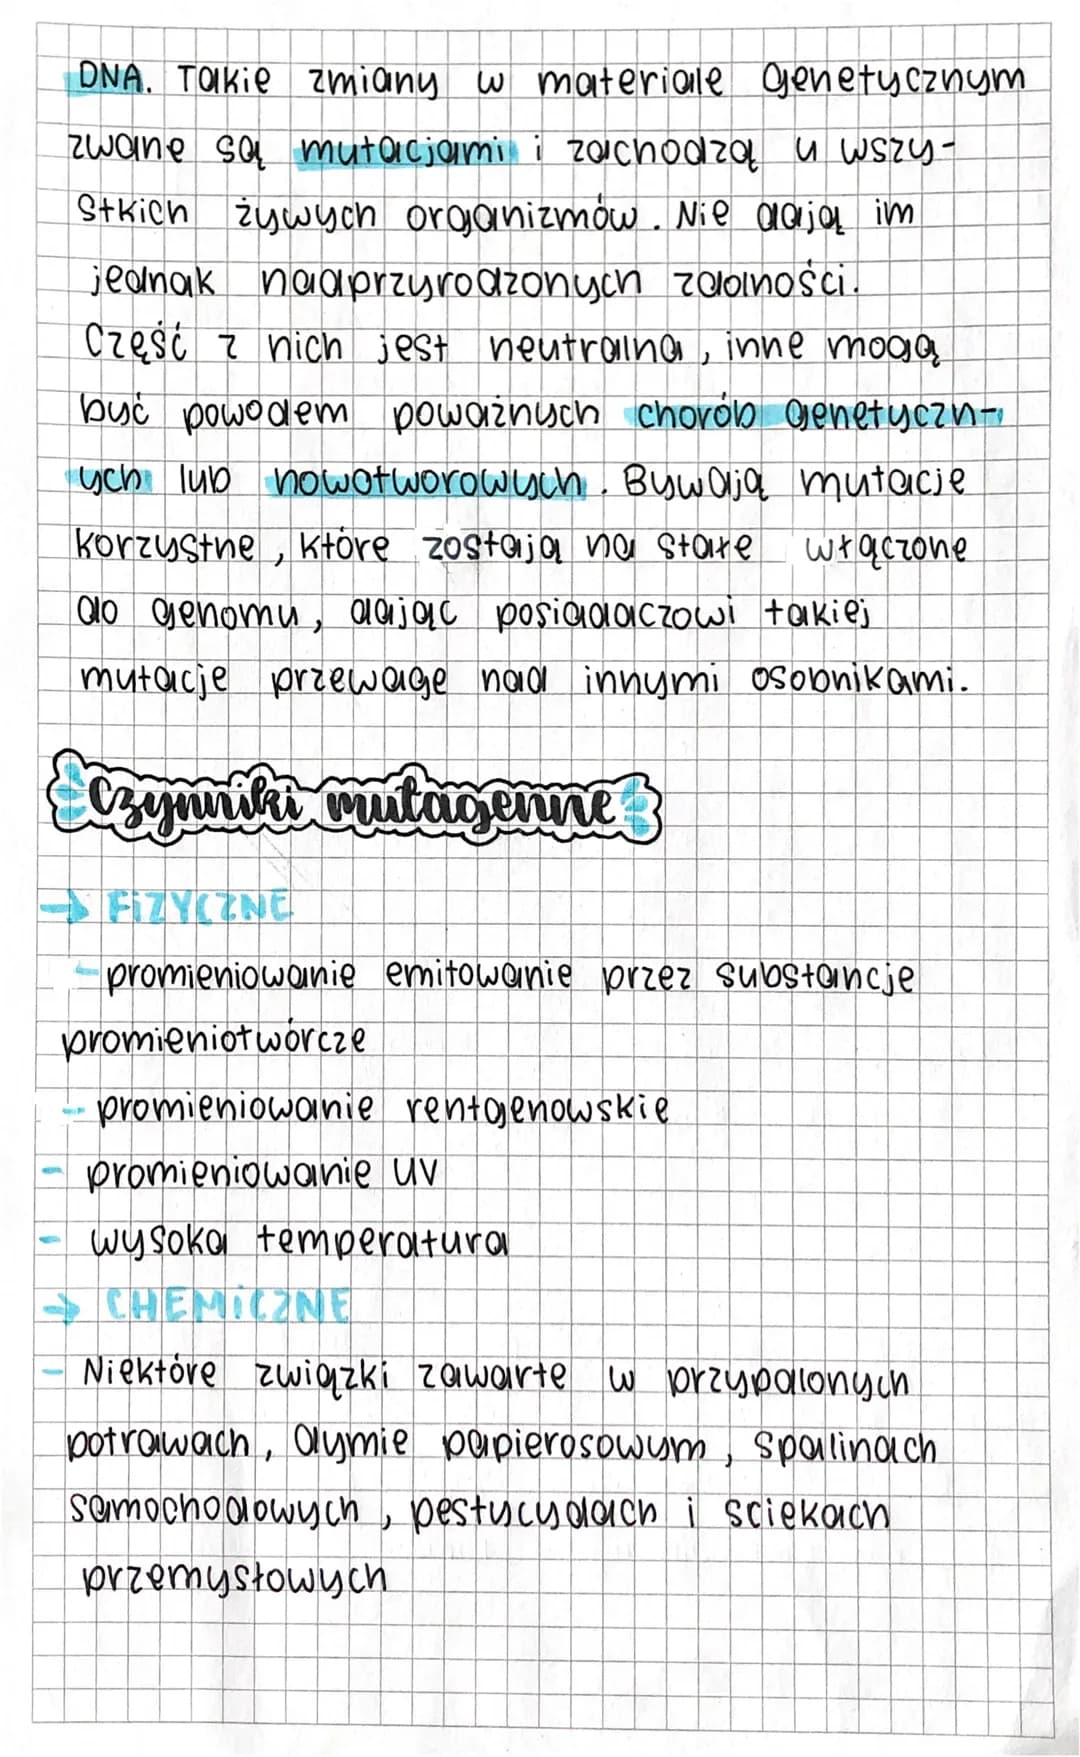 DNA. Takie zmiany w materiale genetycznym
zwane są mutacjami i zachodzą u wszy-
stkich żywych organizmów. Nie dają im
jednak nadprzyrodzonych zdolności.
Część z nich jest neutralna, inne mogą
być powodem poważnych chorób genetyczn-
ych lub nowotworowych. Bywają mutacje
korzystne, które zostają na stałe włączone
do genomu, dając posiadaczowi takiej
mutacje przewagę nad innymi osobnikami.
Czynniki mutagenne
→ FIZYCZNE
- promieniowanie emitowanie przez substancje
promieniotwórcze
- promieniowanie rentgenowskie
- promieniowanie UV
- wysoka temperatura
→ CHEMICZNE
- Niektóre związki zawarte w przypalonych
potrawach, dymie papierosowym, spalinach
samochodowych, pestycydach i sciekach
przemysłowych